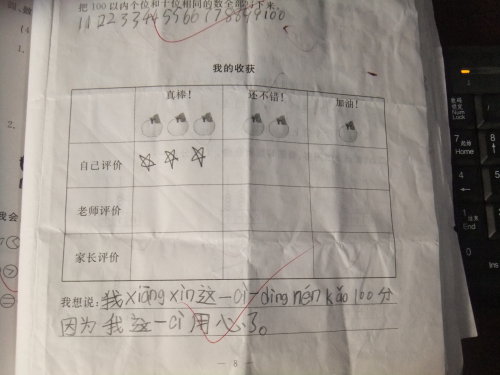 把100以内个位和十位相同的数全部写下来。
11 22 33 44 55 66 77 88 99 100
我的收获
真棒! 还不错! 加油!
自己评价
老师评价
家长评价
我想说:我xiāng xìn这一cì一dìng nén kǎo 100分
因为我这一cì用心了。
— 8 —
1.
2.
我会
数码
锁定
Num
Lock
7 起始
Home
8
↑
4
←
5
1 结束
End